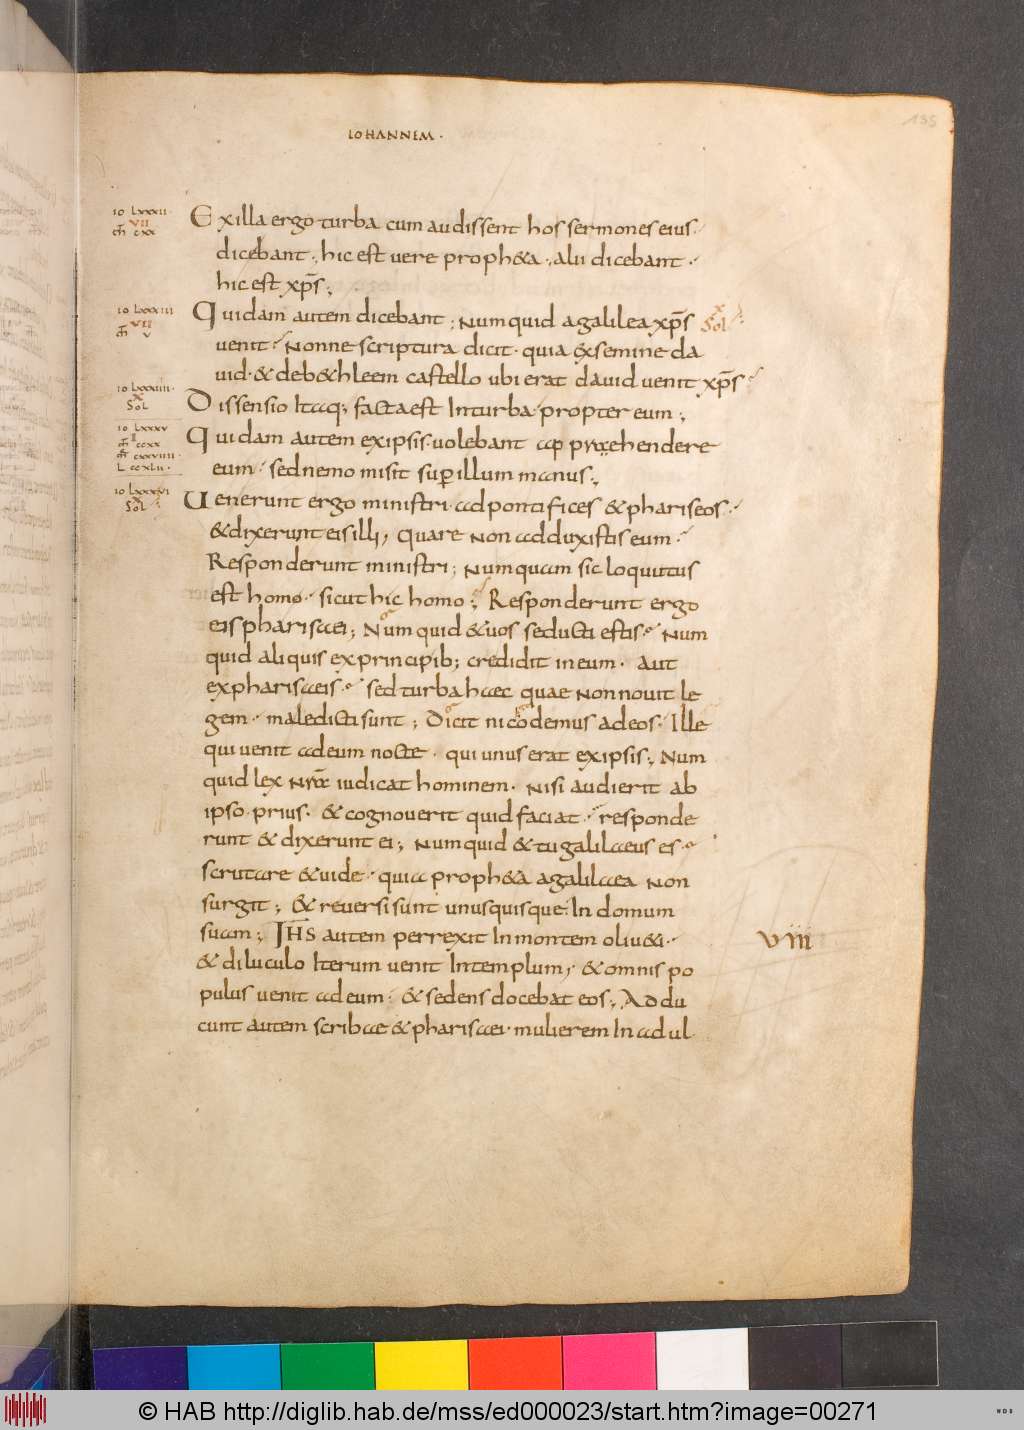 IOHANNEM·
135
IO LXXXII·
VII
mͭ CXX
Exilla ergo turba cum audissent hos sermones eius·
dicebant·, hic est uere proph&a·, alii dicebant·
hic est xp̅s;
IO LXXXIII
VII
mͭ V
Quidam autem dicebant; Numquid agalilea xp̅s
Sol
uenit? Nonne scriptura dicit· quia exsemine da
uid· & deb&hleem castello ubi erat dauid uenit xp̅s
IO LXXXIIII·
X
SOL
Dissensio Itaq; facta est Inturba propter eum;
IO LXXXV
Quidam autem exipsis uolebant
eum· sed nemo misit sup illum manus;
L CCXLII·
IO LXXXVI
X
SOL
Uenerunt ergo ministri ad pontifices & phariseos·
& dixerunt eis illi, quare non adduxistis eum·
Responderunt ministri; Numquam sic loquutus
est homo· sicut hic homo; Responderunt ergo
eis pharisaei; Numquid & uos seducti estis· Num
quid aliquis exprincipib; credidit in eum· Aut
expharisaeis· sed turba haec quae non nouit le
gem· maledicti sunt; Dicit nicodemus adeos· Ille
qui uenit ad eum nocte· qui unus erat exipsis; Num
quid lex iudicat hominem· nisi audierit ab
ipso prius· & cognouerit quid faciat· responde
runt & dixerunt ei; Numquid & tu galilaeus es·
scrutare & uide· quia proph&a agalilaea non
surgit; & reuersi sunt unusquisque In domum
suam; IHS autem perrexit In montem oliu&i·
VIII
& diluculo Iterum uenit Intemplum, & omnis po
pulus uenit ad eum· & sedens docebat eos; Addu
cunt autem scribae & pharisaei· mulierem In adul
© HAB http://diglib.hab.de/mss/ed000023/start.htm?image=00271
WDB